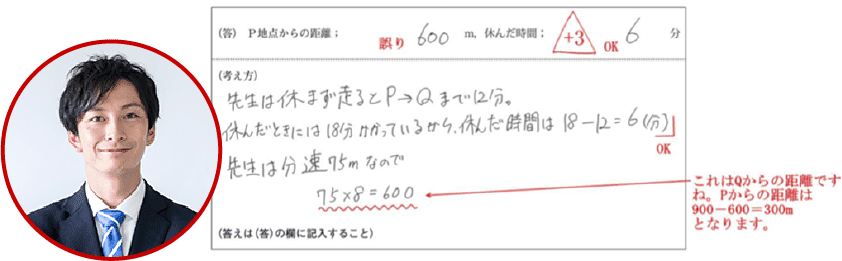 (答) P地点からの距離； 誤り 600 m, 休んだ時間； +3 OK 6 分
(考え方)
先生は休まず走るとP→Qまで12分。
休んだときには18分かかっているから、休んだ時間は 18－12＝6(分)
OK
先生は分速75mなので
75×8＝600
これはQからの距離です
ね。Pからの距離は
900－600＝300m
となります。
(答えは(答)の欄に記入すること)